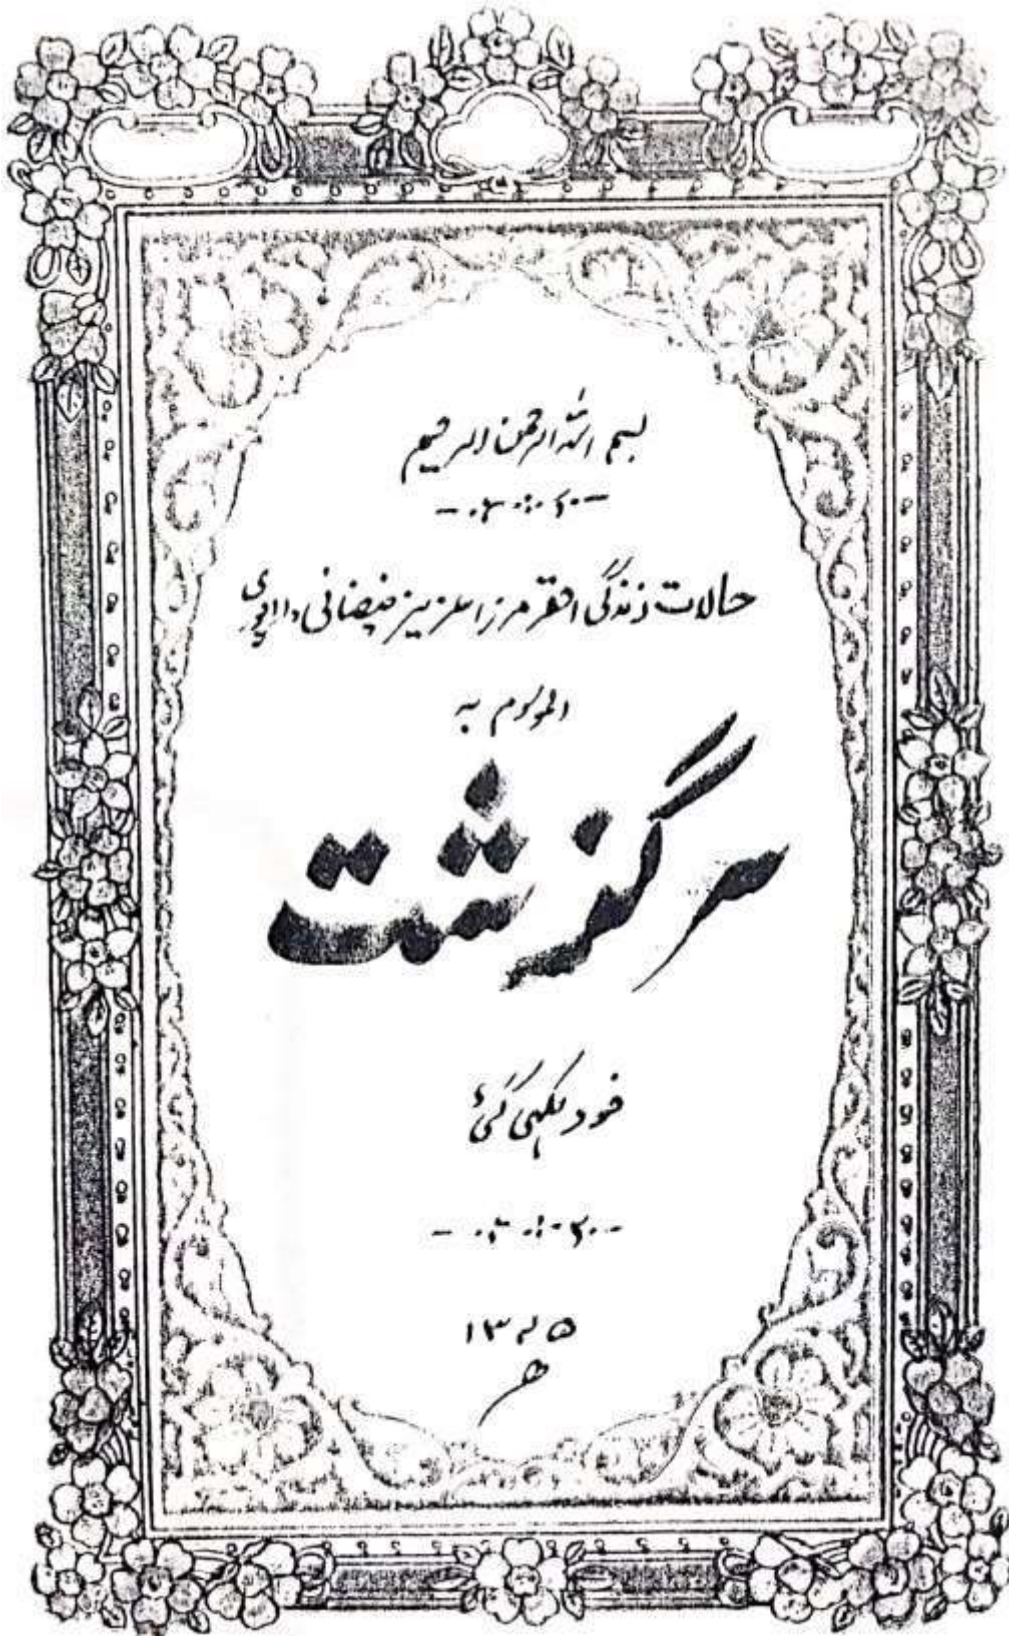 بسم اللہ الرحمن الرحیم
حالات زندگی احقر مرزا عزیز فیضانی داراپوری
الموسوم بہ
سرگزشت
خود لکھی گئی
۱۳۴۵
ھ